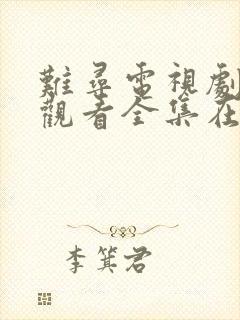 難尋電視劇
觀看全集在
李箕君